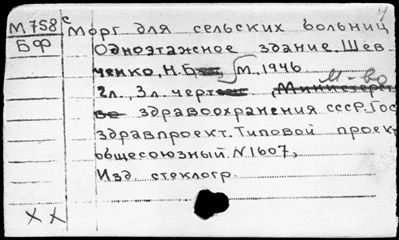 М758с Морг для сельских больниц
БФ Одноэтажное здание. Шев-
ченко, Н.Б. М., 1946
2л., 3л. черт. М-во
здравоохранения СССР. Гос
здравпроект. Типовой проект
общесоюзный. N1607,
Изд. стеклогр.
XX